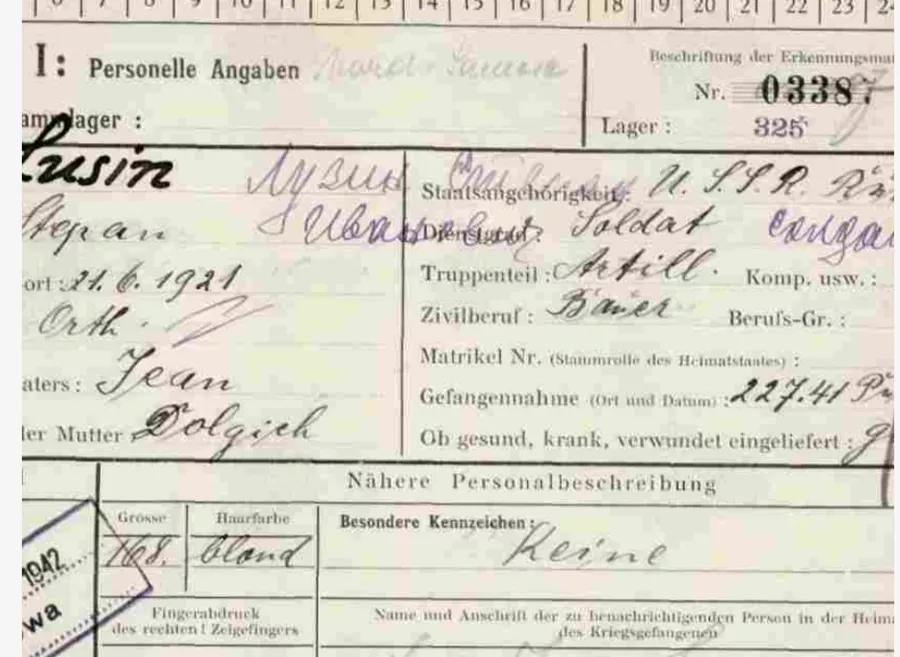 6 7 8 9 10 11 12 13 14 15 16 17 18 19 20 21 22 23 24
I: Personelle Angaben
Beschriftung der Erkennungsmar
Nr. 03387
ammlager :
Lager : 325
Lusin Лузин Степан Staatsangehörigkeit: U. S. S. R.
Stepan Иванович Dienstgrad: Soldat солда
ort : 21. 6. 1921 Truppenteil : Artill. Komp. usw. :
Orth. Zivilberuf : Bauer Berufs-Gr. :
Matrikel Nr. (Stammrolle des Heimatstaates) :
aters : Jean Gefangennahme (Ort und Datum) : 22.7.41
der Mutter Dolgich Ob gesund, krank, verwundet eingeliefert : g
Nähere Personalbeschreibung
Grösse Haarfarbe Besondere Kennzeichen :
168. blond Keine
1942
wa
Fingerabdruck Name und Anschrift der zu benachrichtigenden Person in der Heim
des rechten ! Zeigefingers des Kriegsgefangenen